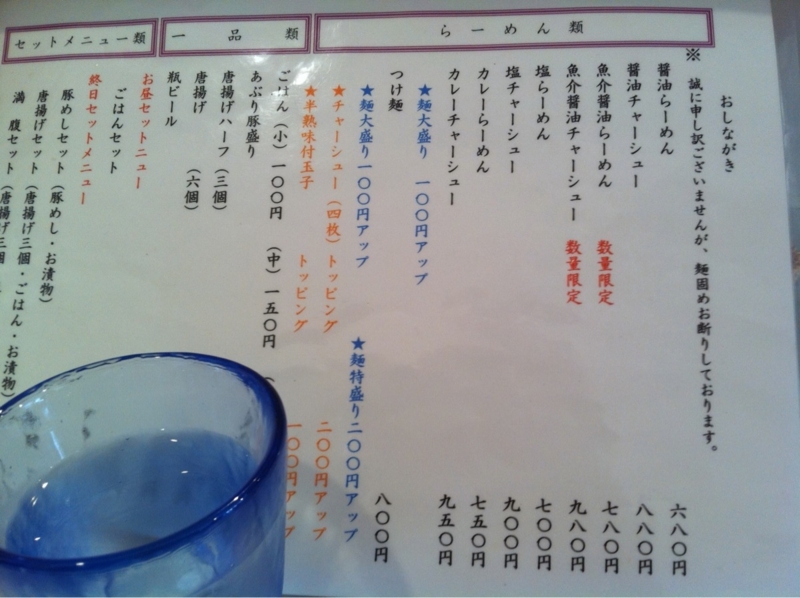 おしながき
※ 誠に申し訳ございませんが、麺固めお断りしております。
らーめん類
醤油らーめん 六八〇円
醤油チャーシュー 八八〇円
魚介醤油らーめん 数量限定 七八〇円
魚介醤油チャーシュー 数量限定 九八〇円
塩らーめん 七〇〇円
塩チャーシュー 九〇〇円
カレーらーめん 七五〇円
カレーチャーシュー 九五〇円
★麺大盛り 一〇〇円アップ
つけ麺 八〇〇円
★麺大盛り一〇〇円アップ ★麺特盛り二〇〇円アップ
★チャーシュー(四枚)トッピング 二〇〇円アップ
★半熟味付玉子 トッピング 一〇〇円アップ
一品類
ごはん(小)一〇〇円 (中)一五〇円 (
あぶり豚盛り
唐揚げハーフ(三個)
唐揚げ (六個)
瓶ビール
セットメニュー類
お昼セットニュー
ごはんセット
終日セットメニュー
豚めしセット(豚めし・お漬物)
唐揚げセット(唐揚げ三個・ごはん・お漬物)
満腹セット(唐揚げ三個